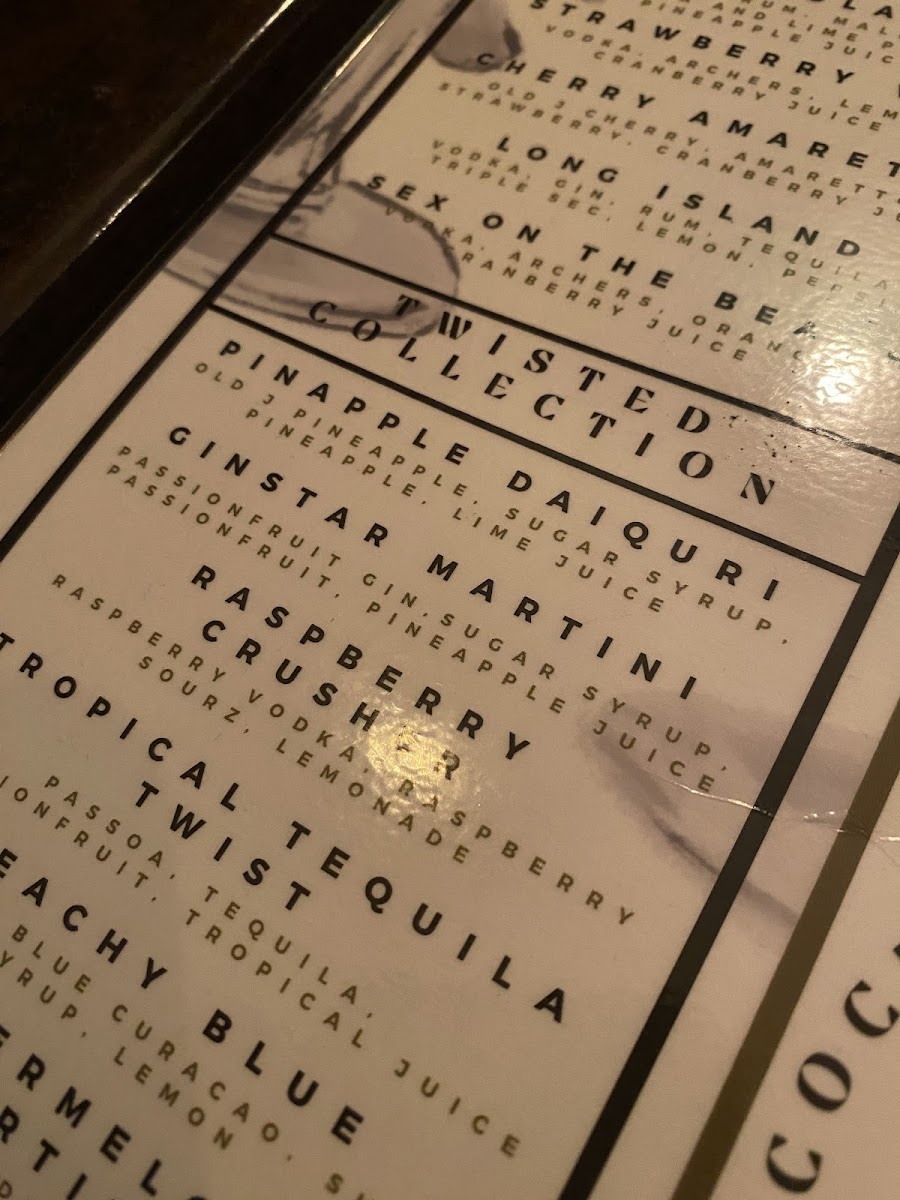 RUM, MAL
AND LIME P
PINEAPPLE JUIC
STRAWBERRY
VODKA, ARCHERS, LEM
CRANBERRY JUICE
CHERRY AMARET
OLD J CHERRY, AMARETT
STRAWBERRY, CRANBERRY JU
LONG ISLAND
VODKA, GIN, RUM, TEQUILA
TRIPLE SEC, LEMON, PEPSI
SEX ON THE BEA
VODKA, ARCHERS, ORANG
CRANBERRY JUICE
TWISTED
COLLECTION
PINAPPLE DAIQURI
OLD J PINEAPPLE, SUGAR SYRUP,
PINEAPPLE, LIME JUICE
GINSTAR MARTINI
PASSIONFRUIT GIN,SUGAR SYRUP,
PASSIONFRUIT, PINEAPPLE JUICE
RASPBERRY
CRUSHER
RASPBERRY VODKA, RASPBERRY
SOURZ, LEMONADE
TROPICAL TEQUILA
TWIST
PASSOA, TEQUILA,
IONFRUIT, TROPICAL JUICE
EACHY BLUE
BLUE CURACAO, S
YRUP, LEMON
ERMEL
RTI
COC